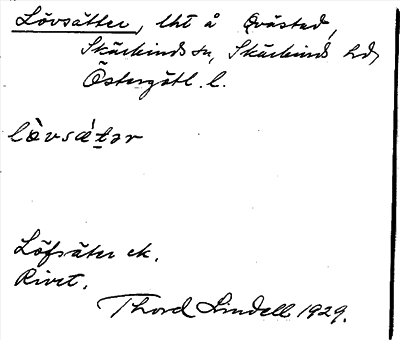 Lövsätter, lht å Qvästad,
Skärkinds sn, Skärkinds hd,
Östergötl. l.
lòvsǽtər
Löfsäter ek.
Rivet.
Thord Lindell 1929.